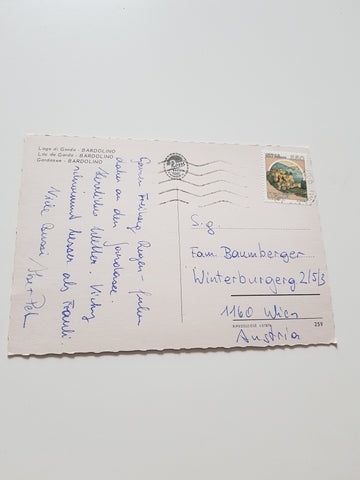 Lago di Garda - BARDOLINO
Lac de Garde - BARDOLINO
Gardasee - BARDOLINO
Ganzen Freitag Regen + fuhren
daher an den Gardasee.
Herrliches Wetter. Vicky
schwimmt besser als Franzi.
Viele Bussi
Sigo
Fam. Baumberger
Winterburgerg 2/5/3
1160 Wien
Austria
259